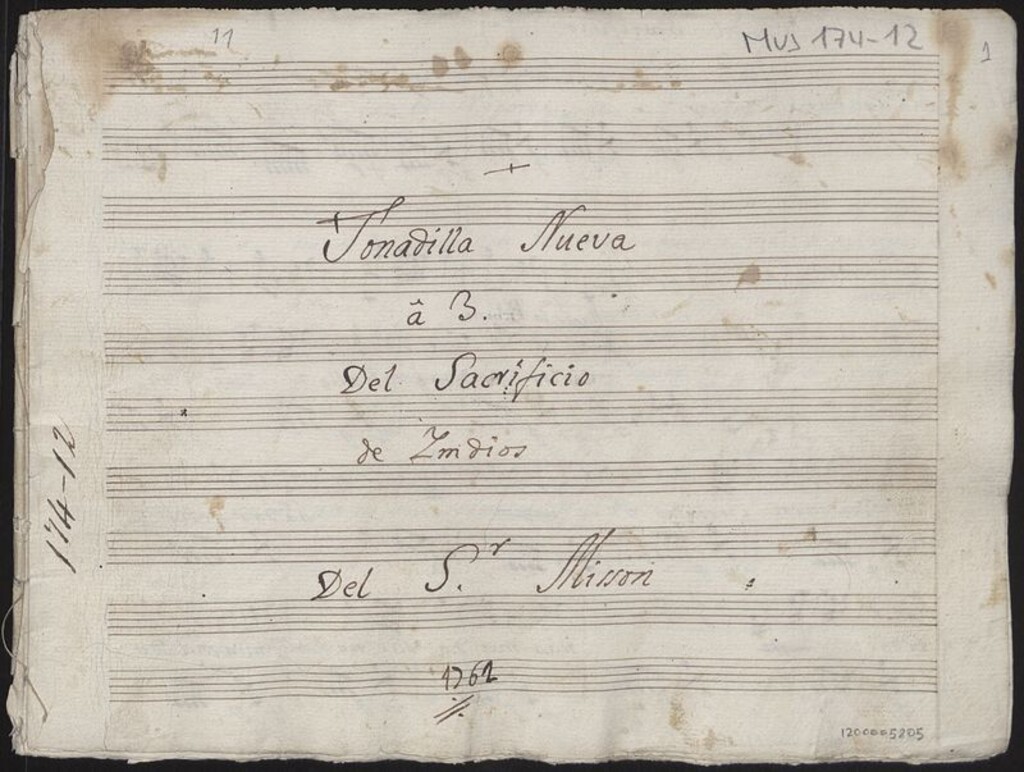 11
Mus 174-12
1
Tonadilla Nueva
â 3.
Del Sacrificio
de Indios
Del S.r Misson
1762
174-12
1200005205